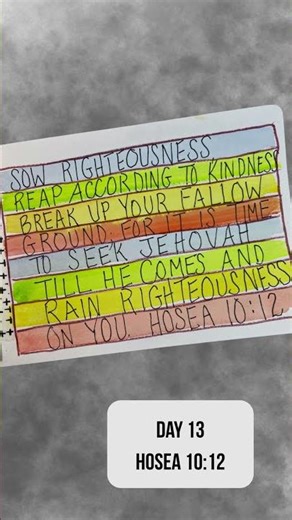 SOW RIGHTEOUSNESS
REAP ACCORDING TO KINDNESS
BREAK UP YOUR FALLOW
GROUND FOR IT IS TIME
TO SEEK JEHOVAH
TILL HE COMES AND
RAIN RIGHTEOUSNESS
ON YOU. HOSEA 10:12
DAY 13
HOSEA 10:12